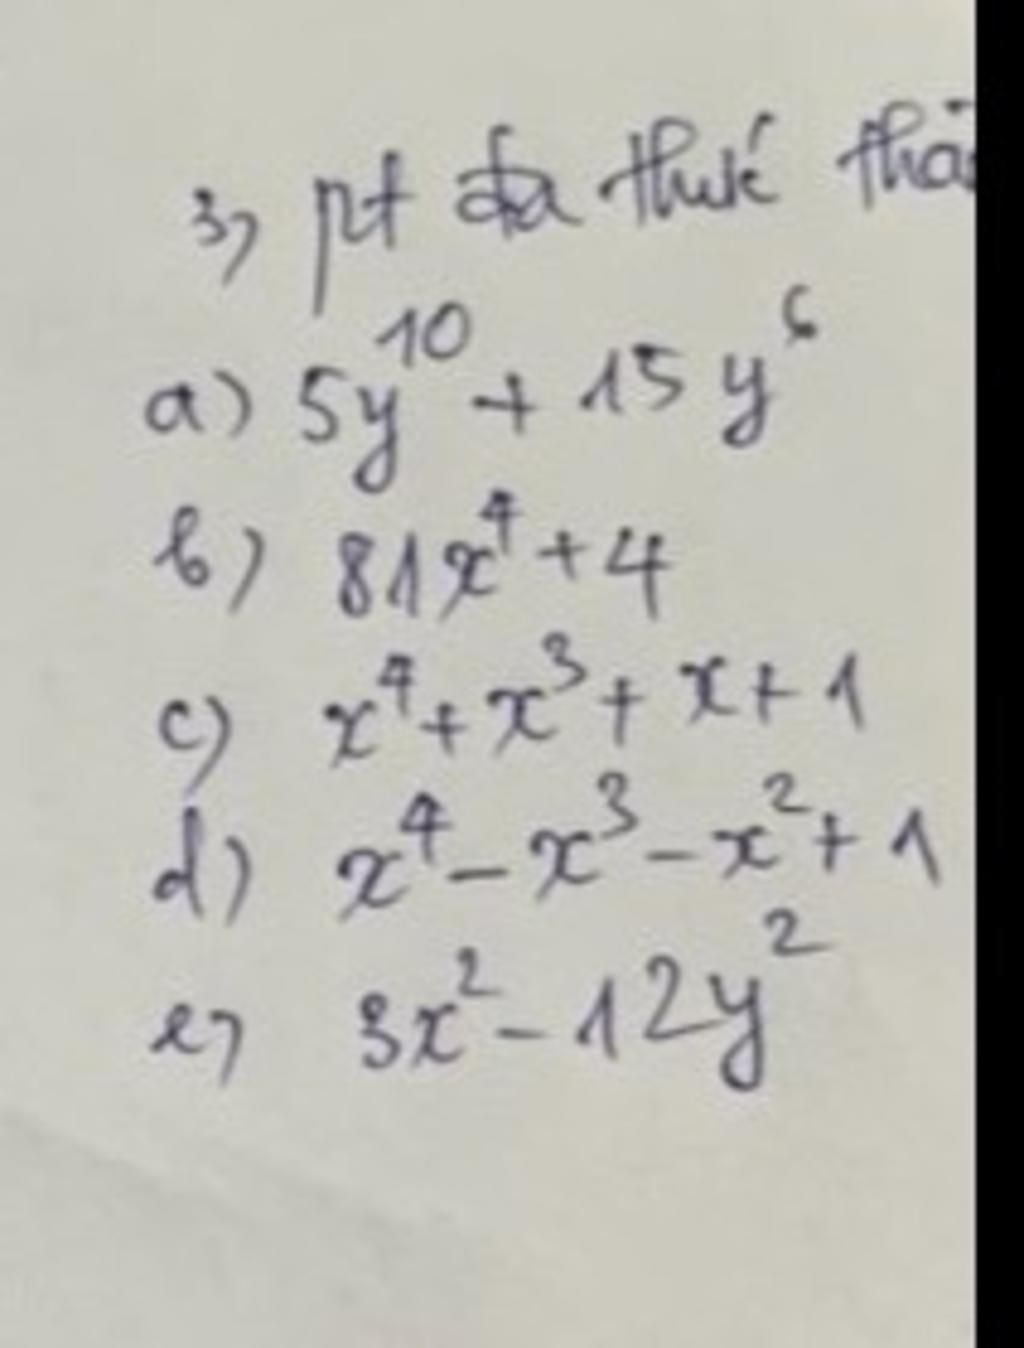 3, pt đa thức
a) 5y¹⁰ + 15y⁶
b) 81x⁴ + 4
c) x⁴ + x³ + x + 1
d) x⁴ - x³ - x² + 1
e, 3x² - 12y²